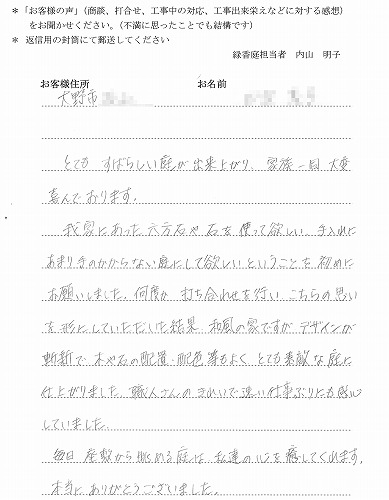 ＊「お客様の声」（商談、打合せ、工事中の対応、工事出来栄えなどに対する感想）
をお聞かせください。（不満に思ったことでも結構です）
＊ 返信用の封筒にて郵送してください
緑香庭担当者 内山 明子
お客様住所 お名前
大野市
とても すばらしい庭が出来上がり、家族一同 大変
喜んでおります。
我家にあった六方石や石を使って欲しい、手入れに
あまり手のかからない庭にして欲しいということを初めに
お願いしました。何度か 打ち合わせを行い こちらの思い
を形にしていただいた結果、和風の家ですが デザインが
斬新で 木や石の配置・配色等もよく とても素敵な庭に
仕上がりました。職人さんの きれいで速い仕事ぶりにも感心
していました。
毎日 座敷から眺める庭は 私達の心を癒してくれます。
本当に ありがとうございました。